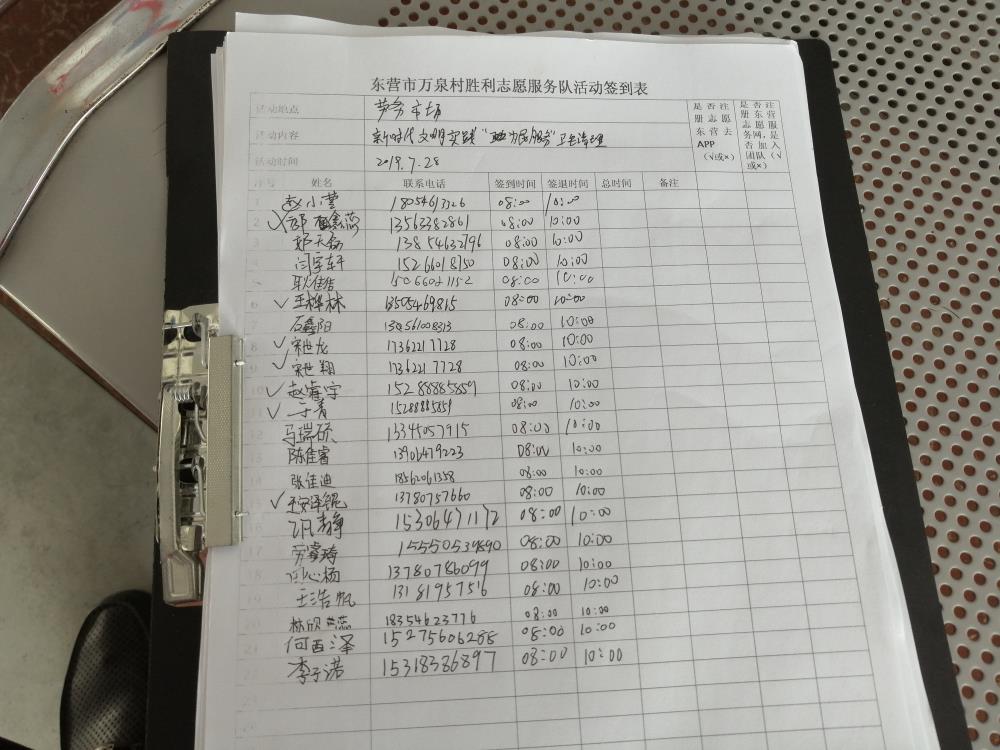 东营市万泉村胜利志愿服务队活动签到表
活动地点 劳务市场
活动内容 新时代文明实践 卫生清理
活动时间 2019.7.28
是否注册志愿东营去APP(√或×)
是否注册东营志愿服务网,是否加入团队(√或×)
序号 姓名 联系电话 签到时间 签退时间 总时间 备注
1 赵小萱 18054613326 08:00 10:00
2 ✓ 13563382861 08:00 10:00
3 郑天磊 13854632796 08:00 10:00
4 闫宇轩 15266018750 08:00 10:00
5 耿佳信 15066021152 08:00 10:00
6 ✓ 王梓林 13505469815 08:00 10:00
7 石鑫阳 08:00 10:00
8 ✓ 宋世龙 17362217728 08:00 10:00
9 ✓ 宋世翔 17362217728 08:00 10:00
10 ✓ 赵睿宇 15288885859 08:00 10:00
11 ✓ 于青 15288885859 08:00 10:00
12 马瑞硕 13345057915 08:00 10:00
13 陈佳睿 13906479223 08:00 10:00
14 张佳迪 18562061358 08:00 10:00
15 ✓ 13780757660 08:00 10:00
16 15306471172 08:00 10:00
17 劳睿琦 15550534840 08:00 10:00
18 周心杨 13780786099 08:00 10:00
19 王浩帆 13181957516 08:00 10:00
20 林欣蕊 18354623776 08:00 10:00
21 何西泽 15275606288 08:00 10:00
22 李子诺 15318386897 08:00 10:00